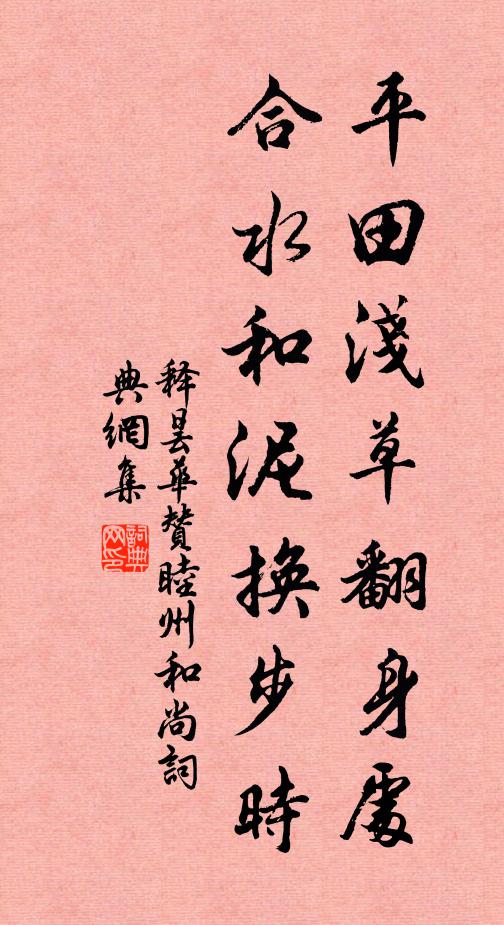 平田淺草翻身處
合水和泥換步時
釋曇華贊睦州和尚詞
典網集
詞典网印